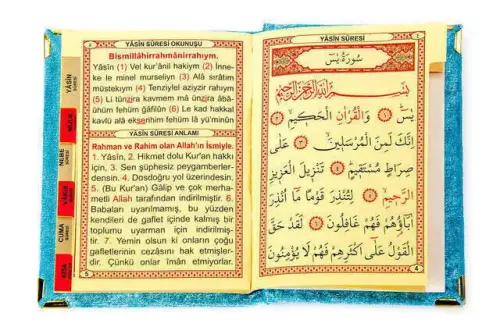 YÂSİN SÛRESİ OKUNUŞU
Bismillâhirrahmânirrahıym.
Yâsîn (1) Vel kur'ânil hakiym (2) İnne-
ke le minel murseliyn (3) Alâ sırâtim
müstekıym (4) Tenziylel aziyzir rahıym
(5) Li tünzira kavmem mâ ünzira âbâ-
ühüm fehüm ğâfilûn (6) Le kad hakkal
kavlü alâ ekserihim fehüm lâ yü'minûn
YÂSİN SÛRESİ ANLAMI
Rahman ve Rahim olan Allah'ın İsmiyle.
1. Yâsîn, 2. Hikmet dolu Kur'an hakkı
için, 3. Sen şüphesiz peygamberler-
densin. 4. Dosdoğru yol üzerindesin.
5. (Bu Kur'an) Gâlip ve çok merha-
metli Allah tarafından indirilmiştir. 6.
Babaları uyarılmamış, bu yüzden
kendileri de gaflet içinde kalmış bir
toplumu uyarman için indirilmiş-
tir. 7. Yemin olsun ki onların çoğu
gafletlerinin cezasını hak etmişler-
dir. Çünkü onlar îmân etmiyorlar.
5
YÂSİN
SÛRESİ
MÜLK
NEBE
VÂKIA
CUMA
KISA
YÂSİN SÛRESİ
سُورَةُ يٰسٓ
بِسْمِ اللّٰهِ الرَّحْمٰنِ الرَّحِيمِ
يٰسٓ ﴿١﴾ وَالْقُرْاٰنِ الْحَكِيمِ ﴿٢﴾
اِنَّكَ لَمِنَ الْمُرْسَلِينَ ﴿٣﴾ عَلٰى
صِرَاطٍ مُسْتَقِيمٍ ﴿٤﴾ تَنْزِيلَ الْعَزِيزِ
الرَّحِيمِ ﴿٥﴾ لِتُنْذِرَ قَوْمًا مَٓا اُنْذِرَ
اٰبَٓاؤُهُمْ فَهُمْ غَافِلُونَ ﴿٦﴾ لَقَدْ حَقَّ
الْقَوْلُ عَلٰٓى اَكْثَرِهِمْ فَهُمْ لَا يُؤْمِنُونَ
4